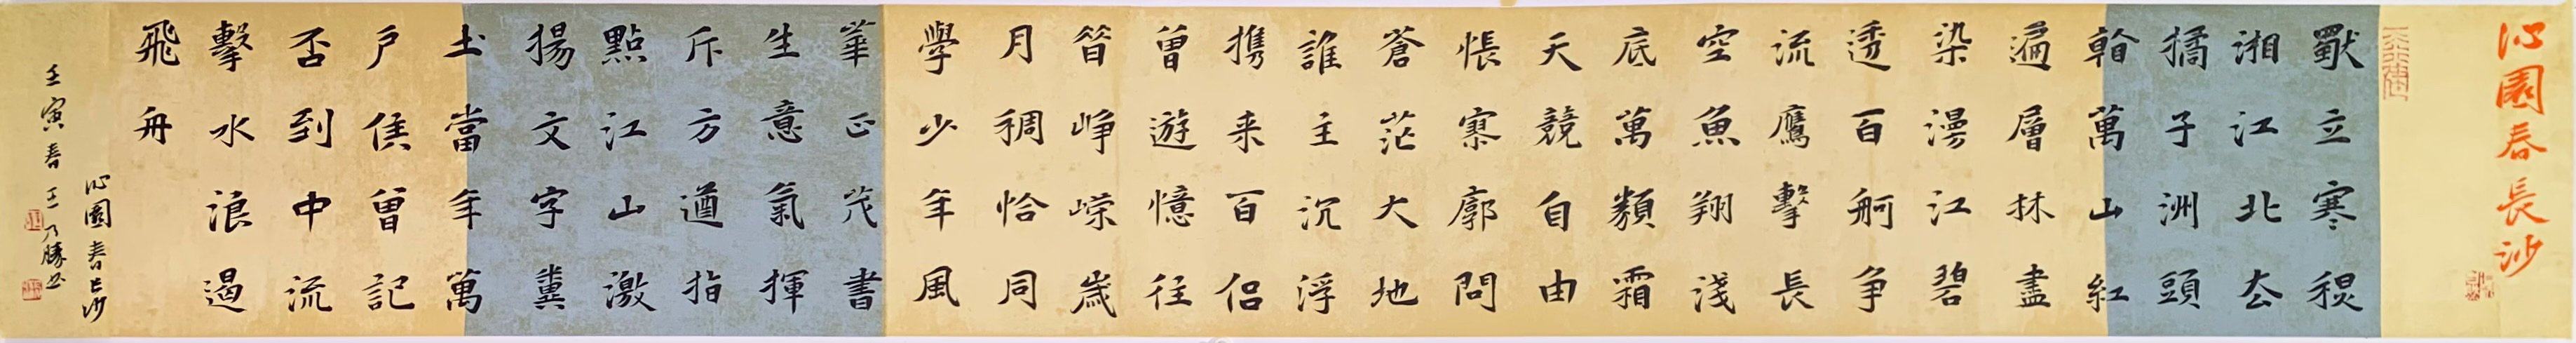 沁園春長沙
獨立寒秋
湘江北去
橘子洲頭
看萬山紅
遍層林盡
染漫江碧
透百舸争
流鷹擊長
空魚翔淺
底萬類霜
天競自由
悵寥廓問
蒼茫大地
誰主沉浮
携来百侣
曾遊憶往
昔崢嶸歲
月稠恰同
學少年風
華正茂書
生意氣揮
斥方遒指
點江山激
揚文字糞
土當年萬
户侯曾記
否到中流
擊水浪遏
飛舟
沁園春长沙
壬寅春王乃勝书